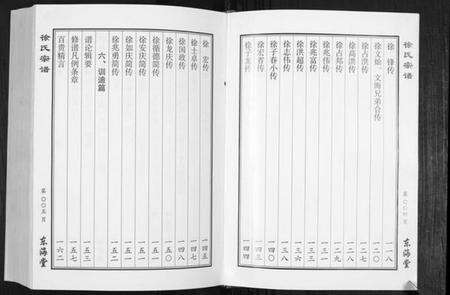 徐氏宗谱
徐 锋传 一一八
徐文灿、文海兄弟合传 一二〇
徐占洪传 一二一
徐高洪传 一二四
徐占郁传 一二九
徐兆伟传 一二八
徐兆富传 一三一
徐洪超传 一三三
徐志伟传 一三六
徐子春小传 一三八
徐宏首传 一四〇
徐子龙传 一四四
东海堂
徐氏宗谱
徐 宏传 一四五
徐士卓传 一四七
徐国政传 一四八
徐龙庆传 一五〇
徐循德简传 一五〇
徐安庆简传 一五一
徐如庆简传 一五二
徐兆勇简传 一五二
六、训迪篇
谱论辑要 一五三
修谱凡例条章 一五七
百贵精言 一六二
第〇〇五页
东海堂